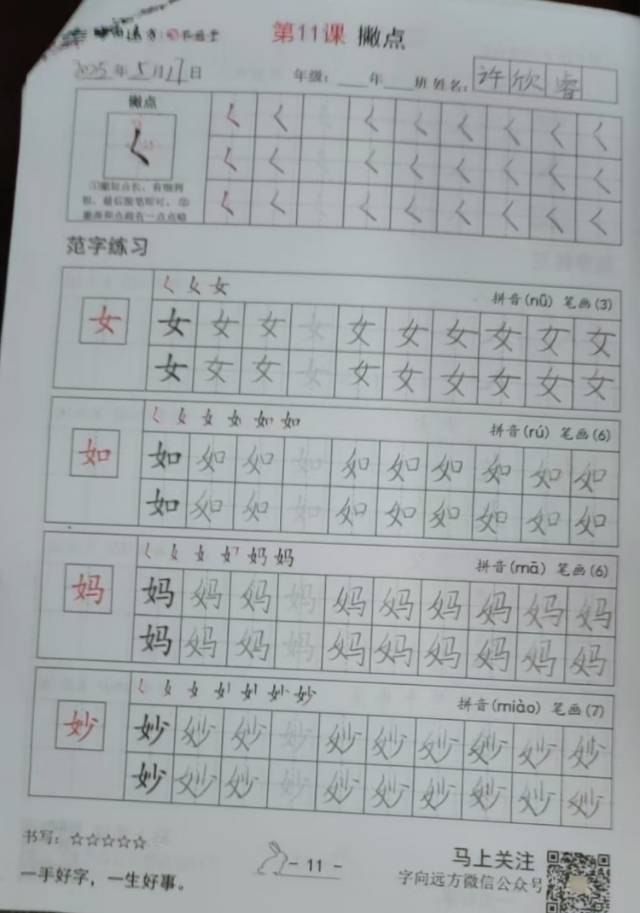 第11课 撇点
2025年5月17日 年级：____年____班 姓名：许欣睿
撇点
范字练习
女 拼音(nǚ) 笔画(3)
女 女 女 女 女 女 女 女 女 女 女
女 女 女 女 女 女 女 女 女 女
如 拼音(rú) 笔画(6)
如 如 如 如 如 如 如 如 如 如 如
如 如 如 如 如 如 如 如 如 如
妈 拼音(mā) 笔画(6)
妈 妈 妈 妈 妈 妈 妈 妈 妈 妈 妈
妈 妈 妈 妈 妈 妈 妈 妈 妈 妈
妙 拼音(miào) 笔画(7)
妙 妙 妙 妙 妙 妙 妙 妙 妙 妙 妙
妙 妙 妙 妙 妙 妙 妙 妙 妙 妙
书写：☆☆☆☆☆
一手好字，一生好事。
- 11 -
马上关注
字向远方微信公众号